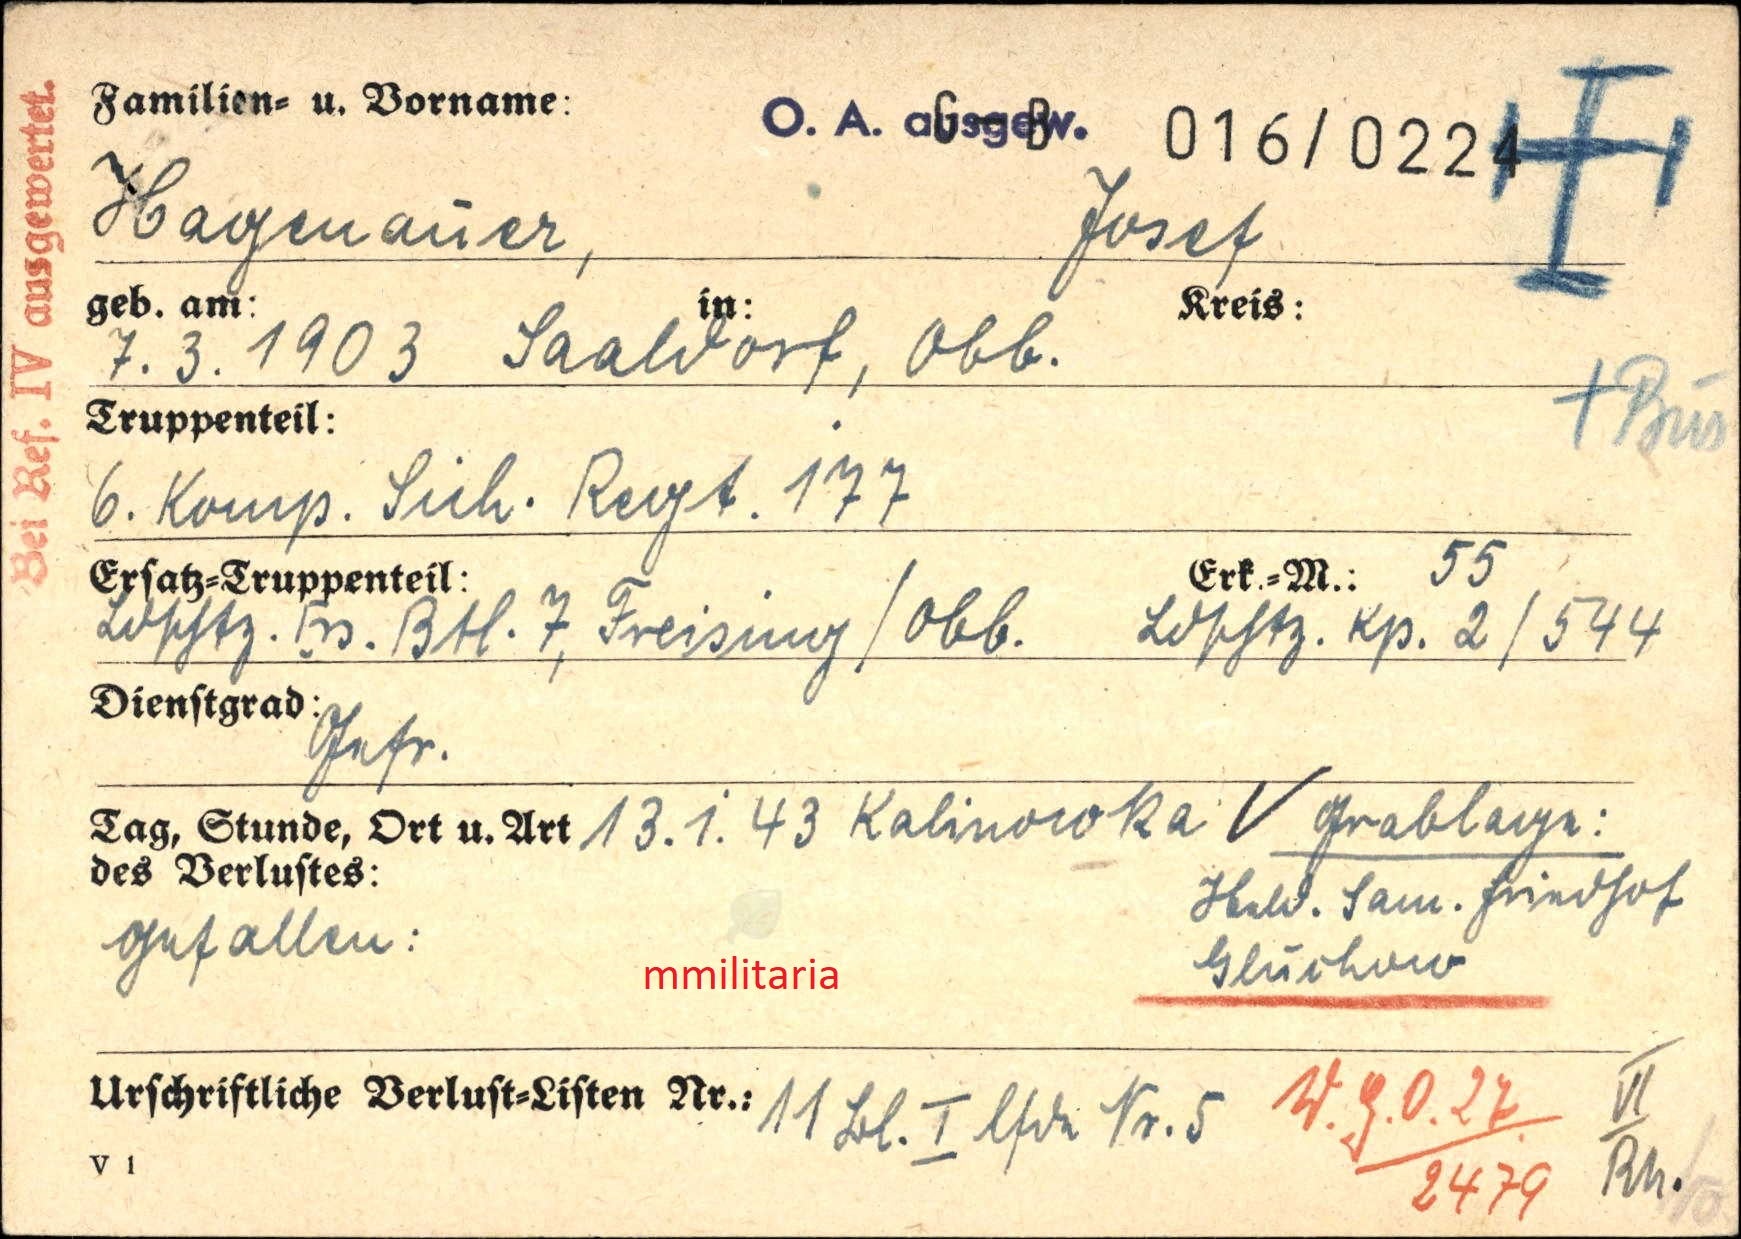 Bei Ref. IV ausgewertet.
Familien- u. Vorname:
O. A. ausgew.
G - B 016/0224
Hagenauer, Josef
geb. am: in: Kreis:
7. 3. 1903 Saaldorf, Obb.
Truppenteil:
6. Komp. Sich. Regt. 177
Ersatz-Truppenteil: Erk.-M.: 55
Ldsschtz. Ers. Btl. 7, Freising / Obb. Ldsschtz. Kp. 2 / 544
Dienstgrad:
Gefr.
Tag, Stunde, Ort u. Art 13. 1. 43 Kalinowka Grablage:
des Verlustes:
Held. Sam. Friedhof
gefallen:
Gluchow
mmilitaria
Urschriftliche Verlust-Listen Nr.: 11 Bl. I lfde Nr. 5
W. G. O. 27
2479
VI
Rh.
V 1